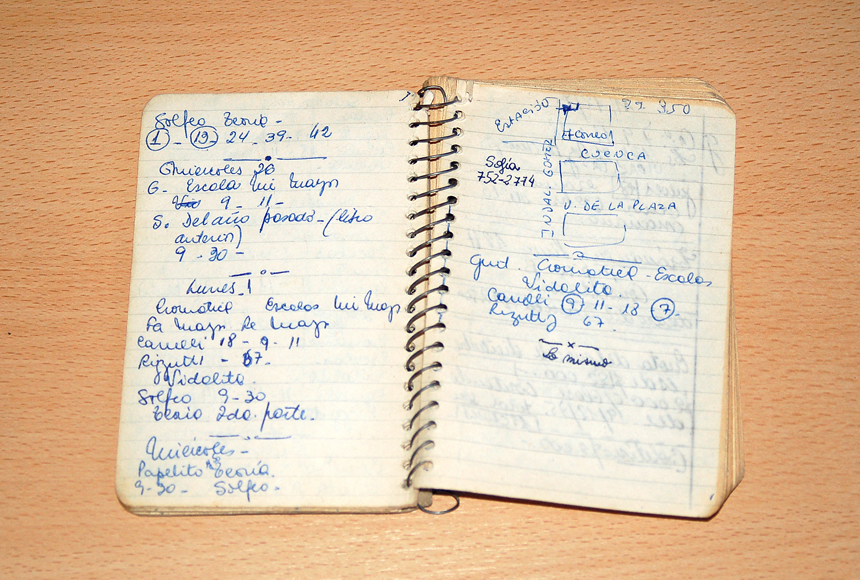 Solfeo Teoría -
1 - 19 - 24 - 39 - 42
Miércoles 26
G. Escala Mi Mayor
9 - 11 -
S. Del año pasado - (libro
anterior)
9 - 30 -
Lunes 1
Cromática Escalas Mi May
Fa Mayor Re Mayor
Carulli 18 - 9 - 11
Rizutti - 67
Vidalita.
Solfeo 9 - 30
Teoría 2da. parte.
Miércoles -
Papelito Teoría.
9 - 30 - Solfeo -
ESTACIÓN
350
CORREO
CUENCA
INDAL. GOMEZ
Sofía
752-2774
V. DE LA PLAZA
Guit. Cromática - Escalas
Vidalita.
Carulli 9 11 - 18 7 -
Rizutti 67.
Lo mismo